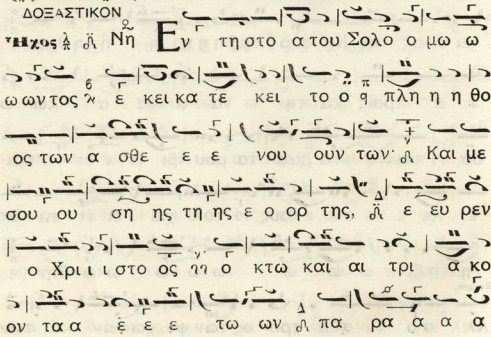 ΔΟΞΑΣΤΙΚΟΝ
Ἦχος Νη Εν τη στο α του Σολο ο μω ω
ω ων τος ε κει κα τε κει το ο πλη η η θο
ος των α σθε ε ε νου ουν των Και με
σου ου ση ης της ε ορ της, ε ευ ρεν
ο Χρι ι ι στο ος ο κτω και αι τρι α κο
ον τα α ε ε ε τω ων πα ρα α α α